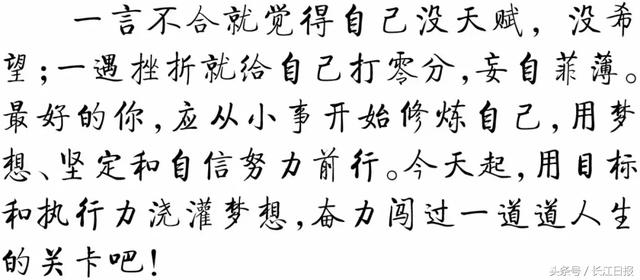 一言不合就觉得自己没天赋，没希
望；一遇挫折就给自己打零分，妄自菲薄。
最好的你，应从小事开始修炼自己，用梦
想、坚定和自信努力前行。今天起，用目标
和执行力浇灌梦想，奋力闯过一道道人生
的关卡吧！
头条号／长江日报